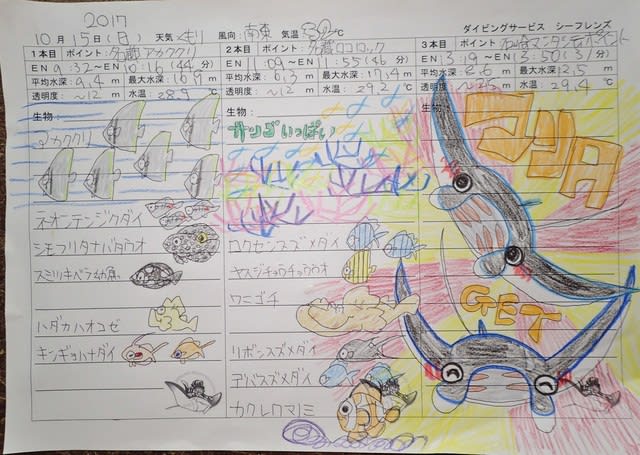 2017
10月 15日(日) 天気 くもり 風向: 南東 気温 32℃ ダイビングサービス シーフレンズ
1本目 ポイント: 名蔵アカククリ
EN 9:32 ～EN 10:16 (44分)
平均水深: 9.4 m 最大水深: 16.9 m
透明度: ～12 m 水温: 28.9 ℃
生物:
アカククリ
ネオンテンジクダイ
シモフリタナバタウオ
スミツキベラ幼魚
ハダカハオコゼ
キンギョハナダイ
2本目 ポイント: 名蔵ロコロック
EN 11:09 ～EN 11:55 (46分)
平均水深: 6.3 m 最大水深: 17.4 m
透明度: ～12 m 水温: 29.2 ℃
生物:
サンゴいっぱい
ロクセンスズメダイ
ヤスジチョウチョウウオ
ワニゴチ
リボンスズメダイ
デバスズメダイ
カクレクマノミ
3本目 ポイント: 石崎マンタシティポイント
EN 13:19 ～EN 13:50 (31分)
平均水深: 8.6 m 最大水深: 12.5 m
透明度: ～25 m 水温: 29.4 ℃
生物:
マンタ
GET